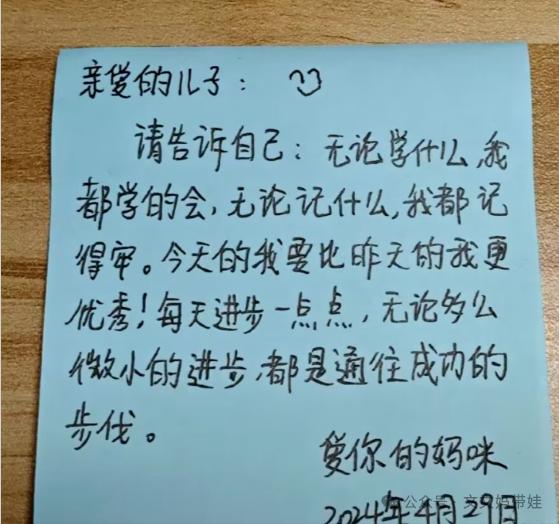 亲爱的儿子:
请告诉自己:无论学什么,我
都学的会,无论记什么,我都记
得牢。今天的我要比昨天的我更
优秀!每天进步一点点,无论多么
微小的进步,都是通往成功的
步伐。
爱你的妈咪
公众号·文文妈带娃
2024年4月29日